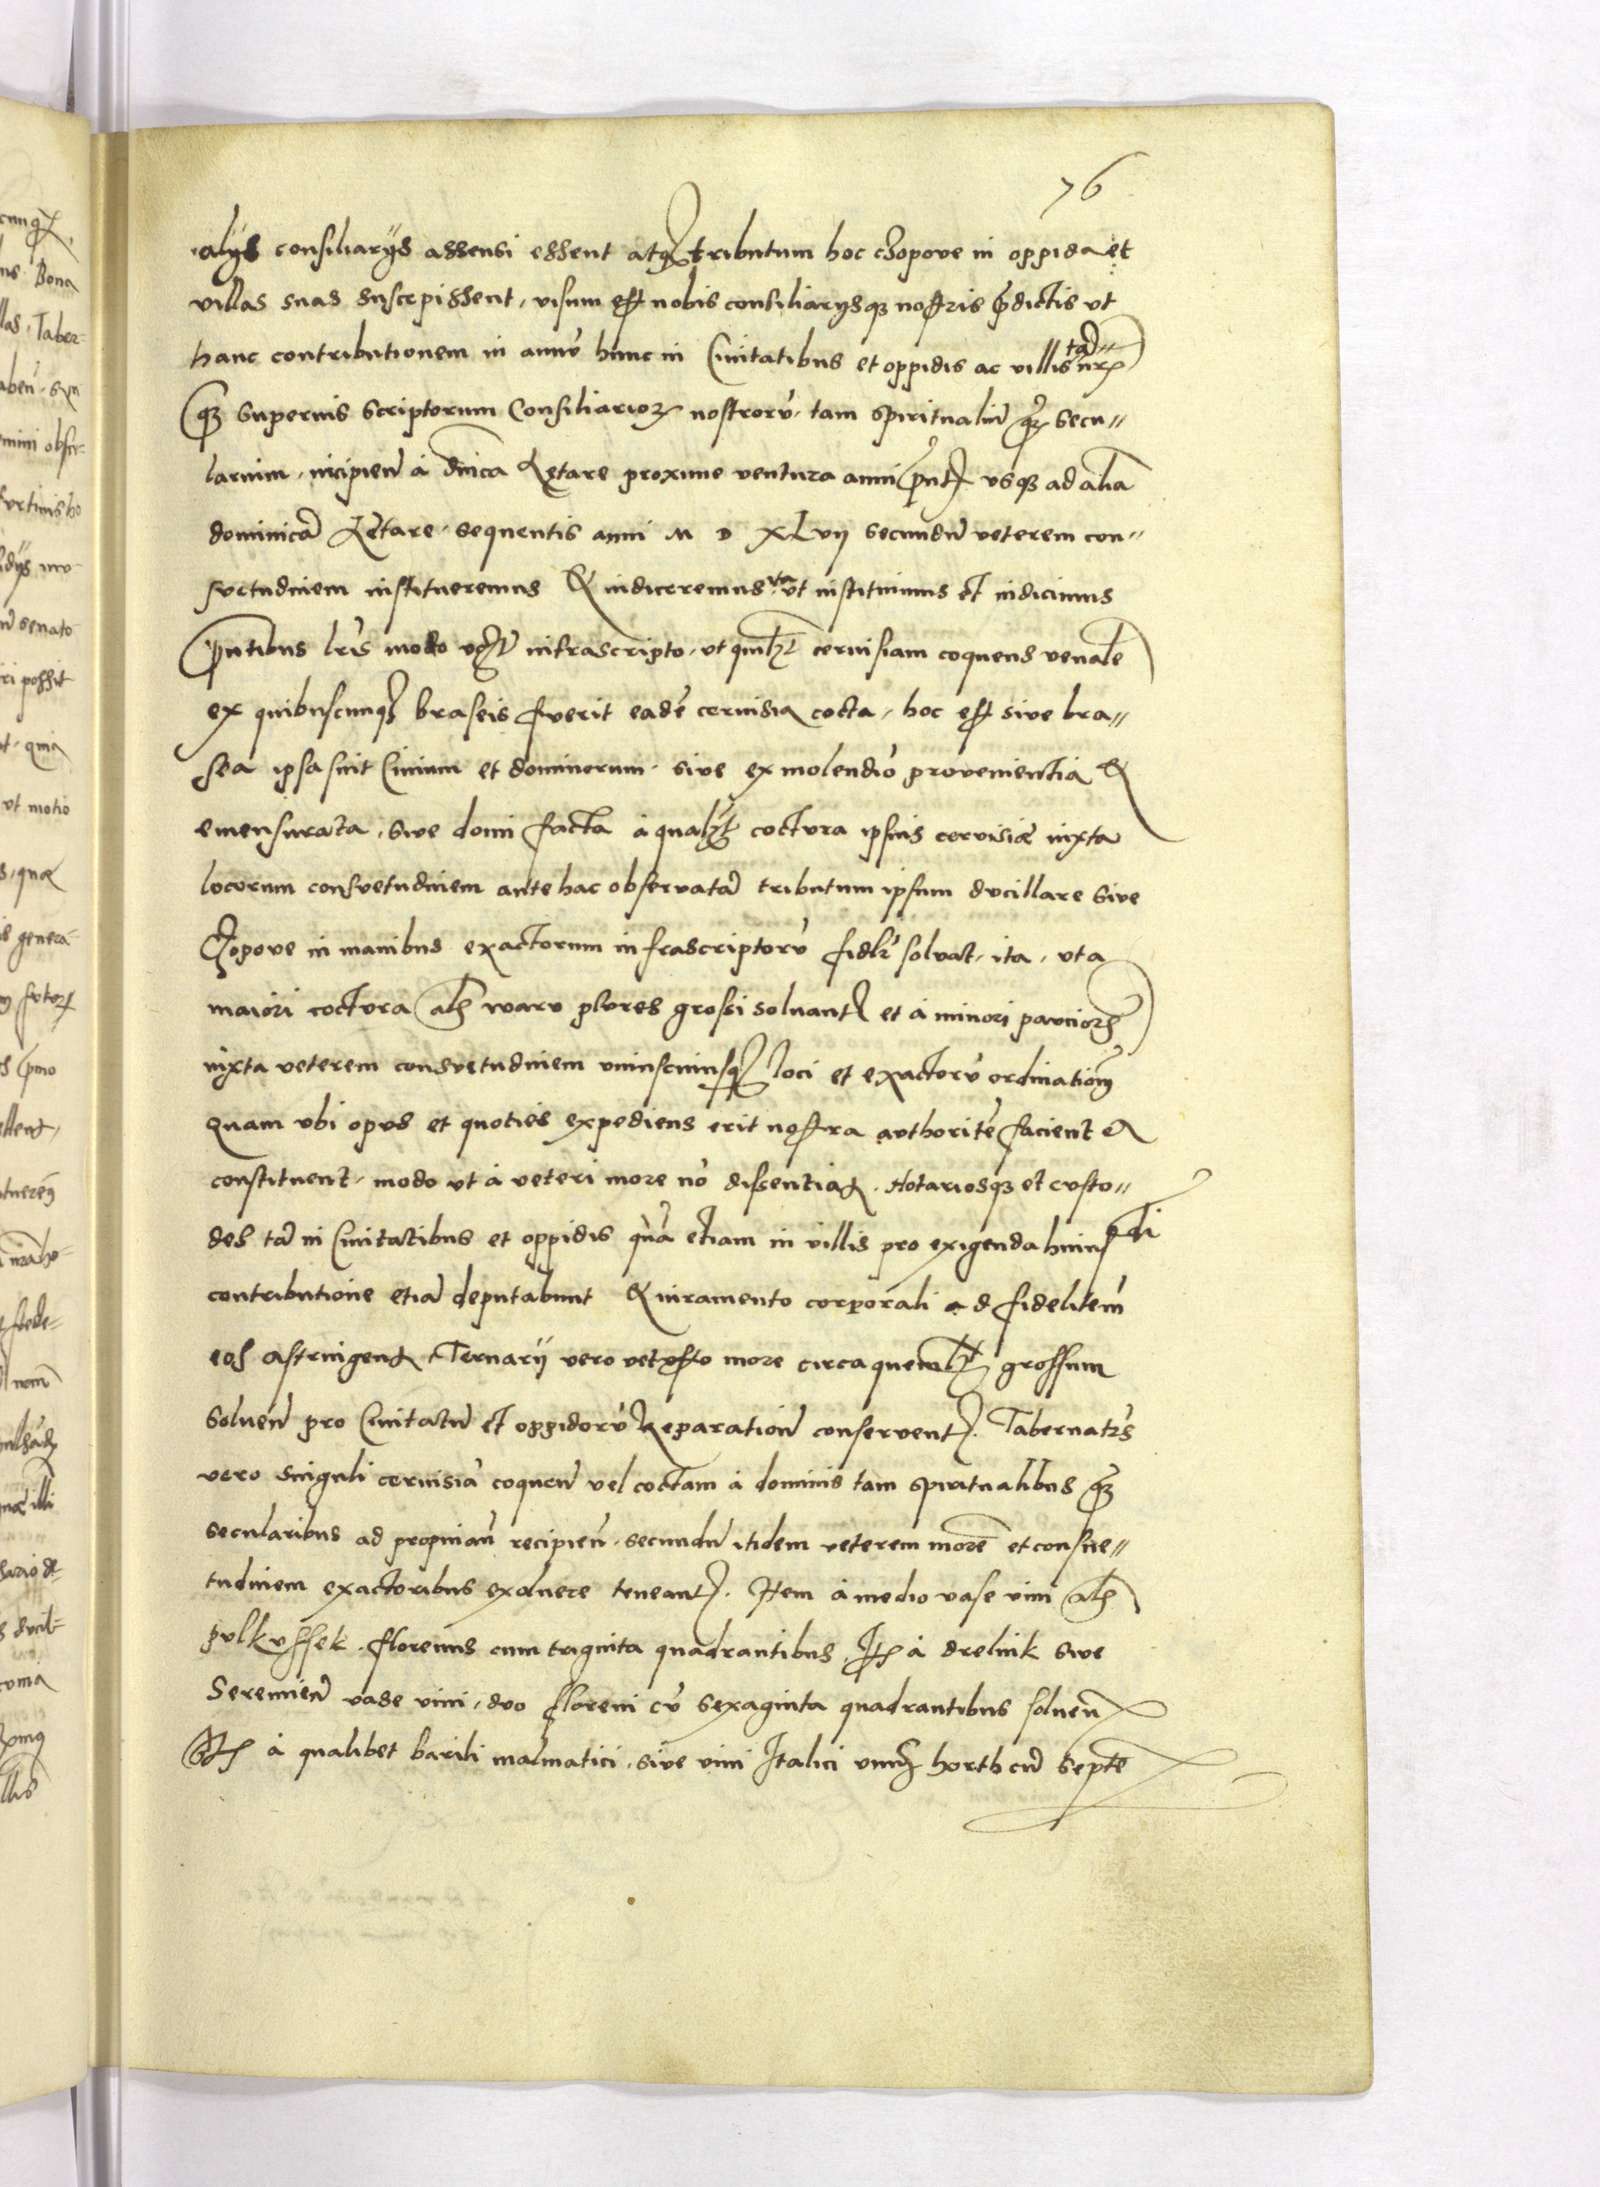 76
alys consiliarys assensi essent atqȝ tributum hoc cżopove in oppida et
villas suas suscepissent, visum est nobis consiliarysqȝ nostris p̄dictis vt
hanc contributionem in annū hunc in Civitatibus et oppidis ac villis tā nr̄is
qȝ supervis scriptorum Consiliarioꝝ nostrorū, tam spiritualiū qȝ secu-
larium, incipien̄ à dn̄ica Lętare proxime ventura anni p̄nt. vsqȝ ad aliā
dominicā Lętare, sequentis anni M D XLvij secundū veterem con-
suetudinem institueremus & indiceremus, vt instituimus et indicimus
p̄ntibus lr̄is modo infrascripto, vt quilꝫt cervisiam coquens venalē
ex quibuscunqȝ braseis fuerit eadē cervisia cocta, hoc est sive bra-
sea ipsa sint Civium et dominorum, sive ex molendīo provenientia &
emensurata, sive domi facta à qualꝫt coctura ipsius cervisiæ iuxta
locorum consvetudinem ante hac observatā tributum ipsum ducillare sive
Cżopove in manibus exactorum infrascriptorū fidlr̄ solvat, ita, vt a
maiori coctura al̄s waru plures grossi solvant et à minori pauciores
iuxta veterem consvetudinem vniuscuiusqȝ loci et exactorū ordinationē
quam vbi opus et quoties expediens erit nostra authoritē facient &
constituent, modo vt à veteri more nō dissentiāt. Notariosqȝ et custo-
des tā in Civitatibus et oppidis quā etiam in villis pro exigenda huiusmōdi
contributione etiā deputabunt & iuramento corporali ad fidelitatem
eos astringent. Ternarij vero more circa quemlꝫt grossum
solven̄ pro Civitatū et oppidorū Reparation̄ conservent. Tabernatr̄s
vero singuli cervisiā coquen̄ vel coctam à dominis tam spiritualibus qȝ
secularibus ad propinan̄ recipien̄, secundū itidem veterem morē et consue-
tudinem exactoribus exolvere teneant. Item à medio vase vini al̄s
pulkussek, florenus cum triginta quadrantibus. Itē à drelink sive
Seremien̄ vase vini, duo floreni cū sexaginta quadrantibus solven̄
Itē à qualibet barili malmatici, sive vini Italici vnus horth cū septē